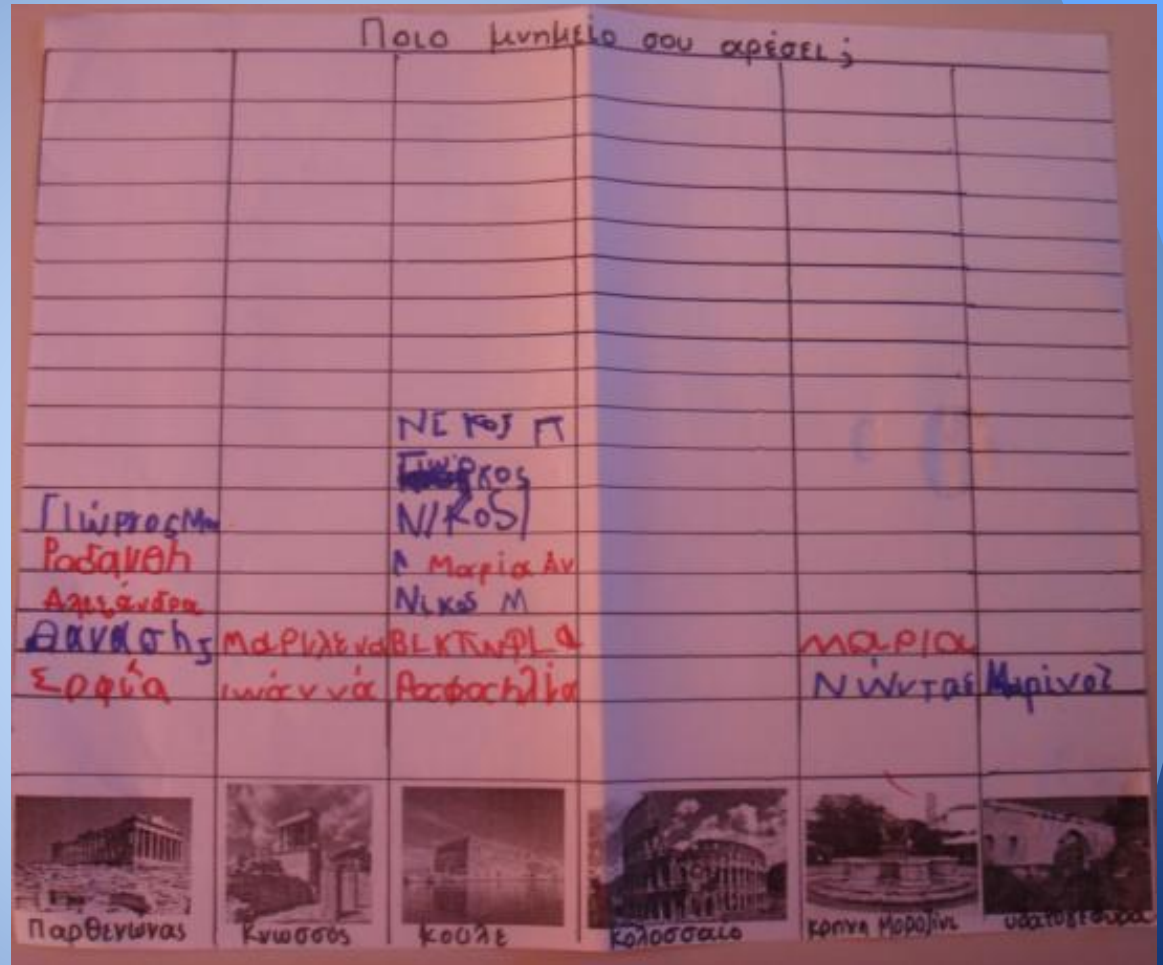 Ποιο μνημείο σου αρέσει;
ΝΙκος Π
Γιώρκος
Γιώργος Μα ΝΙΚΟS
Ροδανθη Μαρία Αν
Αλεξάνδρα Νικος Μ
Θανάσης μαρυλενα ΒΙΚΤωΡΙα μαρια
Σοφία ιωάννά Ραφαηλία Νώντας Μαρίνος
Παρθενώνας Κνωσσός κούλε κολοσσαίο κρηνη Μοροζίνι υδατογέφυρα